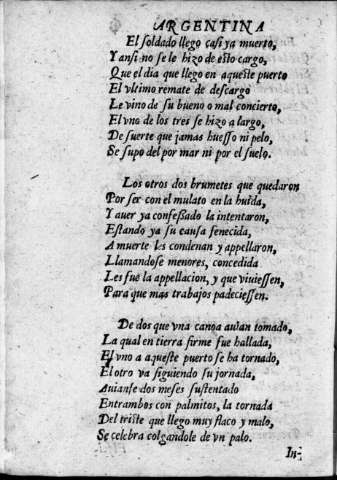 ARGENTINA
El soldado llego casi ya muerto,
Y ansi no se le hizo de esto cargo,
Que el dia que llego en aqueste puerto
El vltimo remate de descargo
Le vino de su bueno o mal concierto,
El vno de los tres se hizo a largo,
De suerte que jamas huesso ni pelo,
Se supo del por mar ni por el suelo.
Los otros dos brumetes que quedaron
Por ser con el mulato en la huida,
Y auer ya confessado la intentaron,
Estando ya su causa fenecida,
A muerte les condenan y appellaron,
Llamandose menores, concedida
Les fue la appellacion, y que viuiessen,
Para que mas trabajos padeciessen.
De dos que vna canoa auian tomado,
La qual en tierra firme fue hallada,
El vno a aqueste puerto se ha tornado,
El otro va siguiendo su jornada,
Auianse dos meses sustentado
Entrambos con palmitos, la tornada
Del triste que llego muy flaco y malo,
Se celebra colgandole de vn palo.
In-